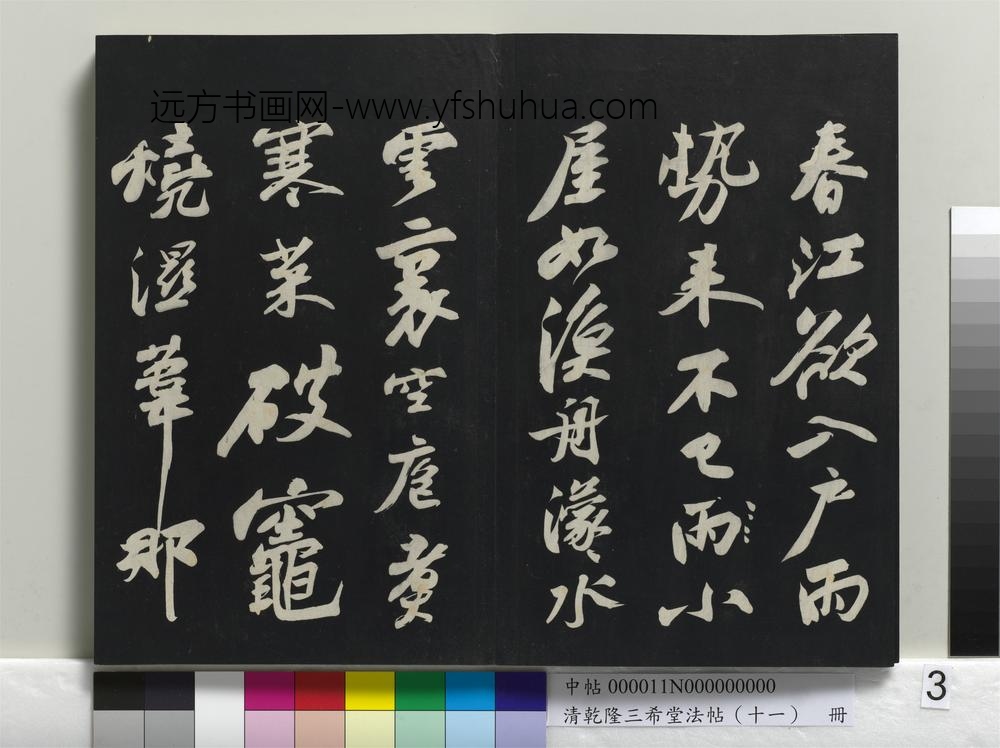 远方书画网-www.yfshuhua.com
春江欲入戶雨
勢來不已雨小
屋如漁舟濛〻水
雲裏空庖煮
寒菜破竈
燒濕葦那
中帖 000011N000000000
清乾隆三希堂法帖（十一） 冊
3